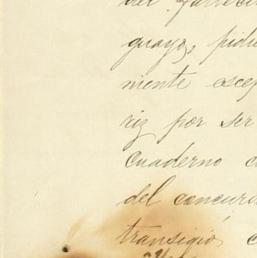 guayo, pidie
mente acep
riz por ser
Cuaderno c
del concurs
transigió, c